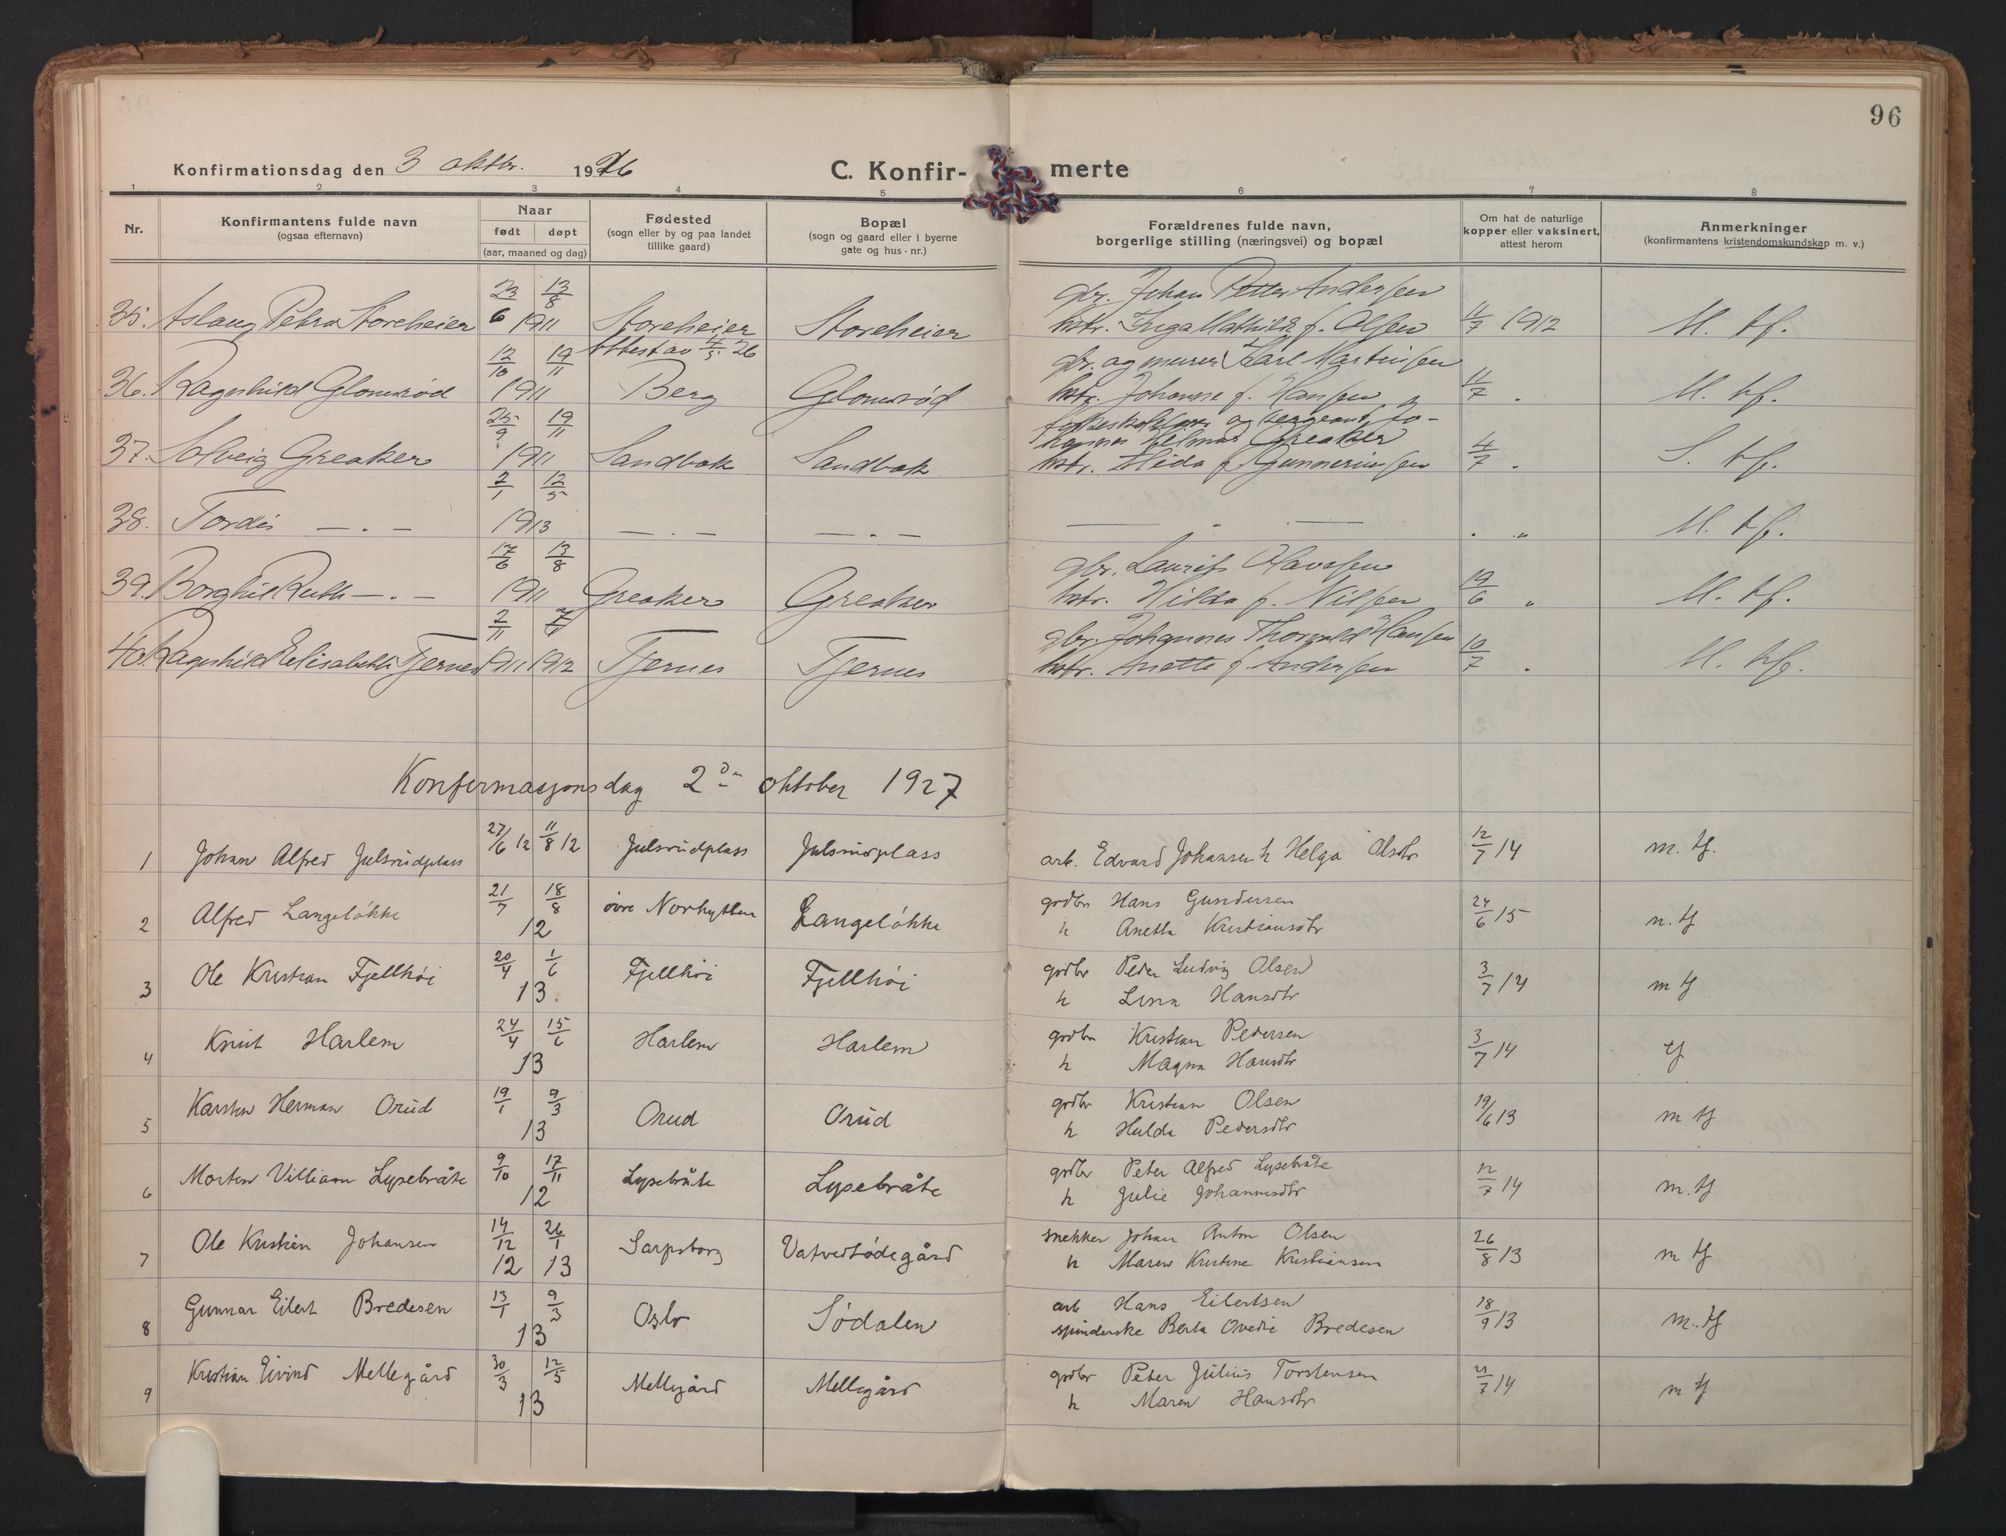 96
Konfirmationsdag den 3 oktbr. 1926 C. Konfir- merte
1 2 3 4 5 6 7 8
Nr. Konfirmantens fulde navn (ogsaa efternavn) Naar født døpt (aar, maaned og dag) Fødested (sogn eller by og paa landet tillike gaard) Bopæl (sogn og gaard eller i byerne gate og hus-nr.) Forældrenes fulde navn, borgerlige stilling (næringsvei) og bopæl Om hat de naturlige kopper eller vaksinert, attest herom Anmerkninger (konfirmantens kristendomskundskap m. v.)
23/6 13/8 gbr. Johan Petter Andersen
35. Aslaug Petra Storeheier 1911 Storeheier Storeheier hstr. Inga Mathilde f. Olsen 11/7 1912 M. tf.
12/10 19/11 Attest av 4/5 26 gbr. og murer Karl Martinsen
36. Ragnhild Glomsrød 1911 Berg Glomsrød hstr. Johanne f. Hansen 11/7 " M. tf.
25/9 19/11 og sergeant Jo-
hannes Hilmar Greaker
37. Solveig Greaker 1911 Sandbæk Sandbæk hstr. Hilda f. Gunneriusen 4/7 " S. tf.
2/1 12/5
38. Tordis — . — 1913 — . — — . — — " — . " M. tf.
17/6 13/8 gbr. Laurits Olavesen
39. Borghild Ruth — . — 1911 Greaker Greaker hstr. Hilda f. Nilsen 19/6 " M. tf.
2/11 gbr. Johannes Thorvald Hansen
40. Ragnhild Elisabeth Tjernes 1911 1912 Tjernes Tjernes hstr. Anette f. Andersen 10/7 " M. tf.
Konfirmasjonsdag 2den oktober 1927
1 Johan Alfred Julsrudplass 27/6 12 11/8 12 Julsrudplass Julsrudplass arb. Edvard Johansen h Helga Olsdtr 12/7 14 m. tf.
2 Alfred Langeløkke 21/7 18/8 12 øvre Norhytten Langeløkke grdbr Hans Gundersen 24/6 15 m. tf
h Anetta Kristiansdtr
3 Ole Kristian Fjellhøi 20/4 1/6 13 Fjellhøi Fjellhøi grdbr Peder Ludvig Olsen 3/7 14 m tf
h Lina Hansdtr
4 Knut Harlem 24/4 15/6 13 Harlem Harlem grdbr Kristian Pedersen 3/7 14 tf
h Magna Hansdtr
5 Karsten Herman Orud 19/1 9/3 13 Orud Orud grdbr Kristian Olsen 19/6 13 m tf
h Hulda Pedersdtr
6 Morten Villiam Lysebråte 9/10 17/11 12 Lysebråte Lysebråte grdbr Peter Alfred Lysebråte 12/7 14 m. tf
h Julie Johannesdtr
7 Ole Kristian Johansen 14/12 12 26/1 13 Sarpsborg Vatvedtødegård snekker Johan Anton Olsen 26/8 13 m tf
h Maren Kristine Kristiansen
8 Gunnar Eilert Bredesen 13/1 9/3 13 Oslo Sødalen arb Hans Eilertsen 18/9 13 m. tf
spinderske Berta Ovedie Bredesen
9 Kristian Eivind Mellegård 30/3 12/5 13 Mellegård Mellegård grdbr Peter Julius Torstensen 7 14 m tf
h Maren Hansdtr